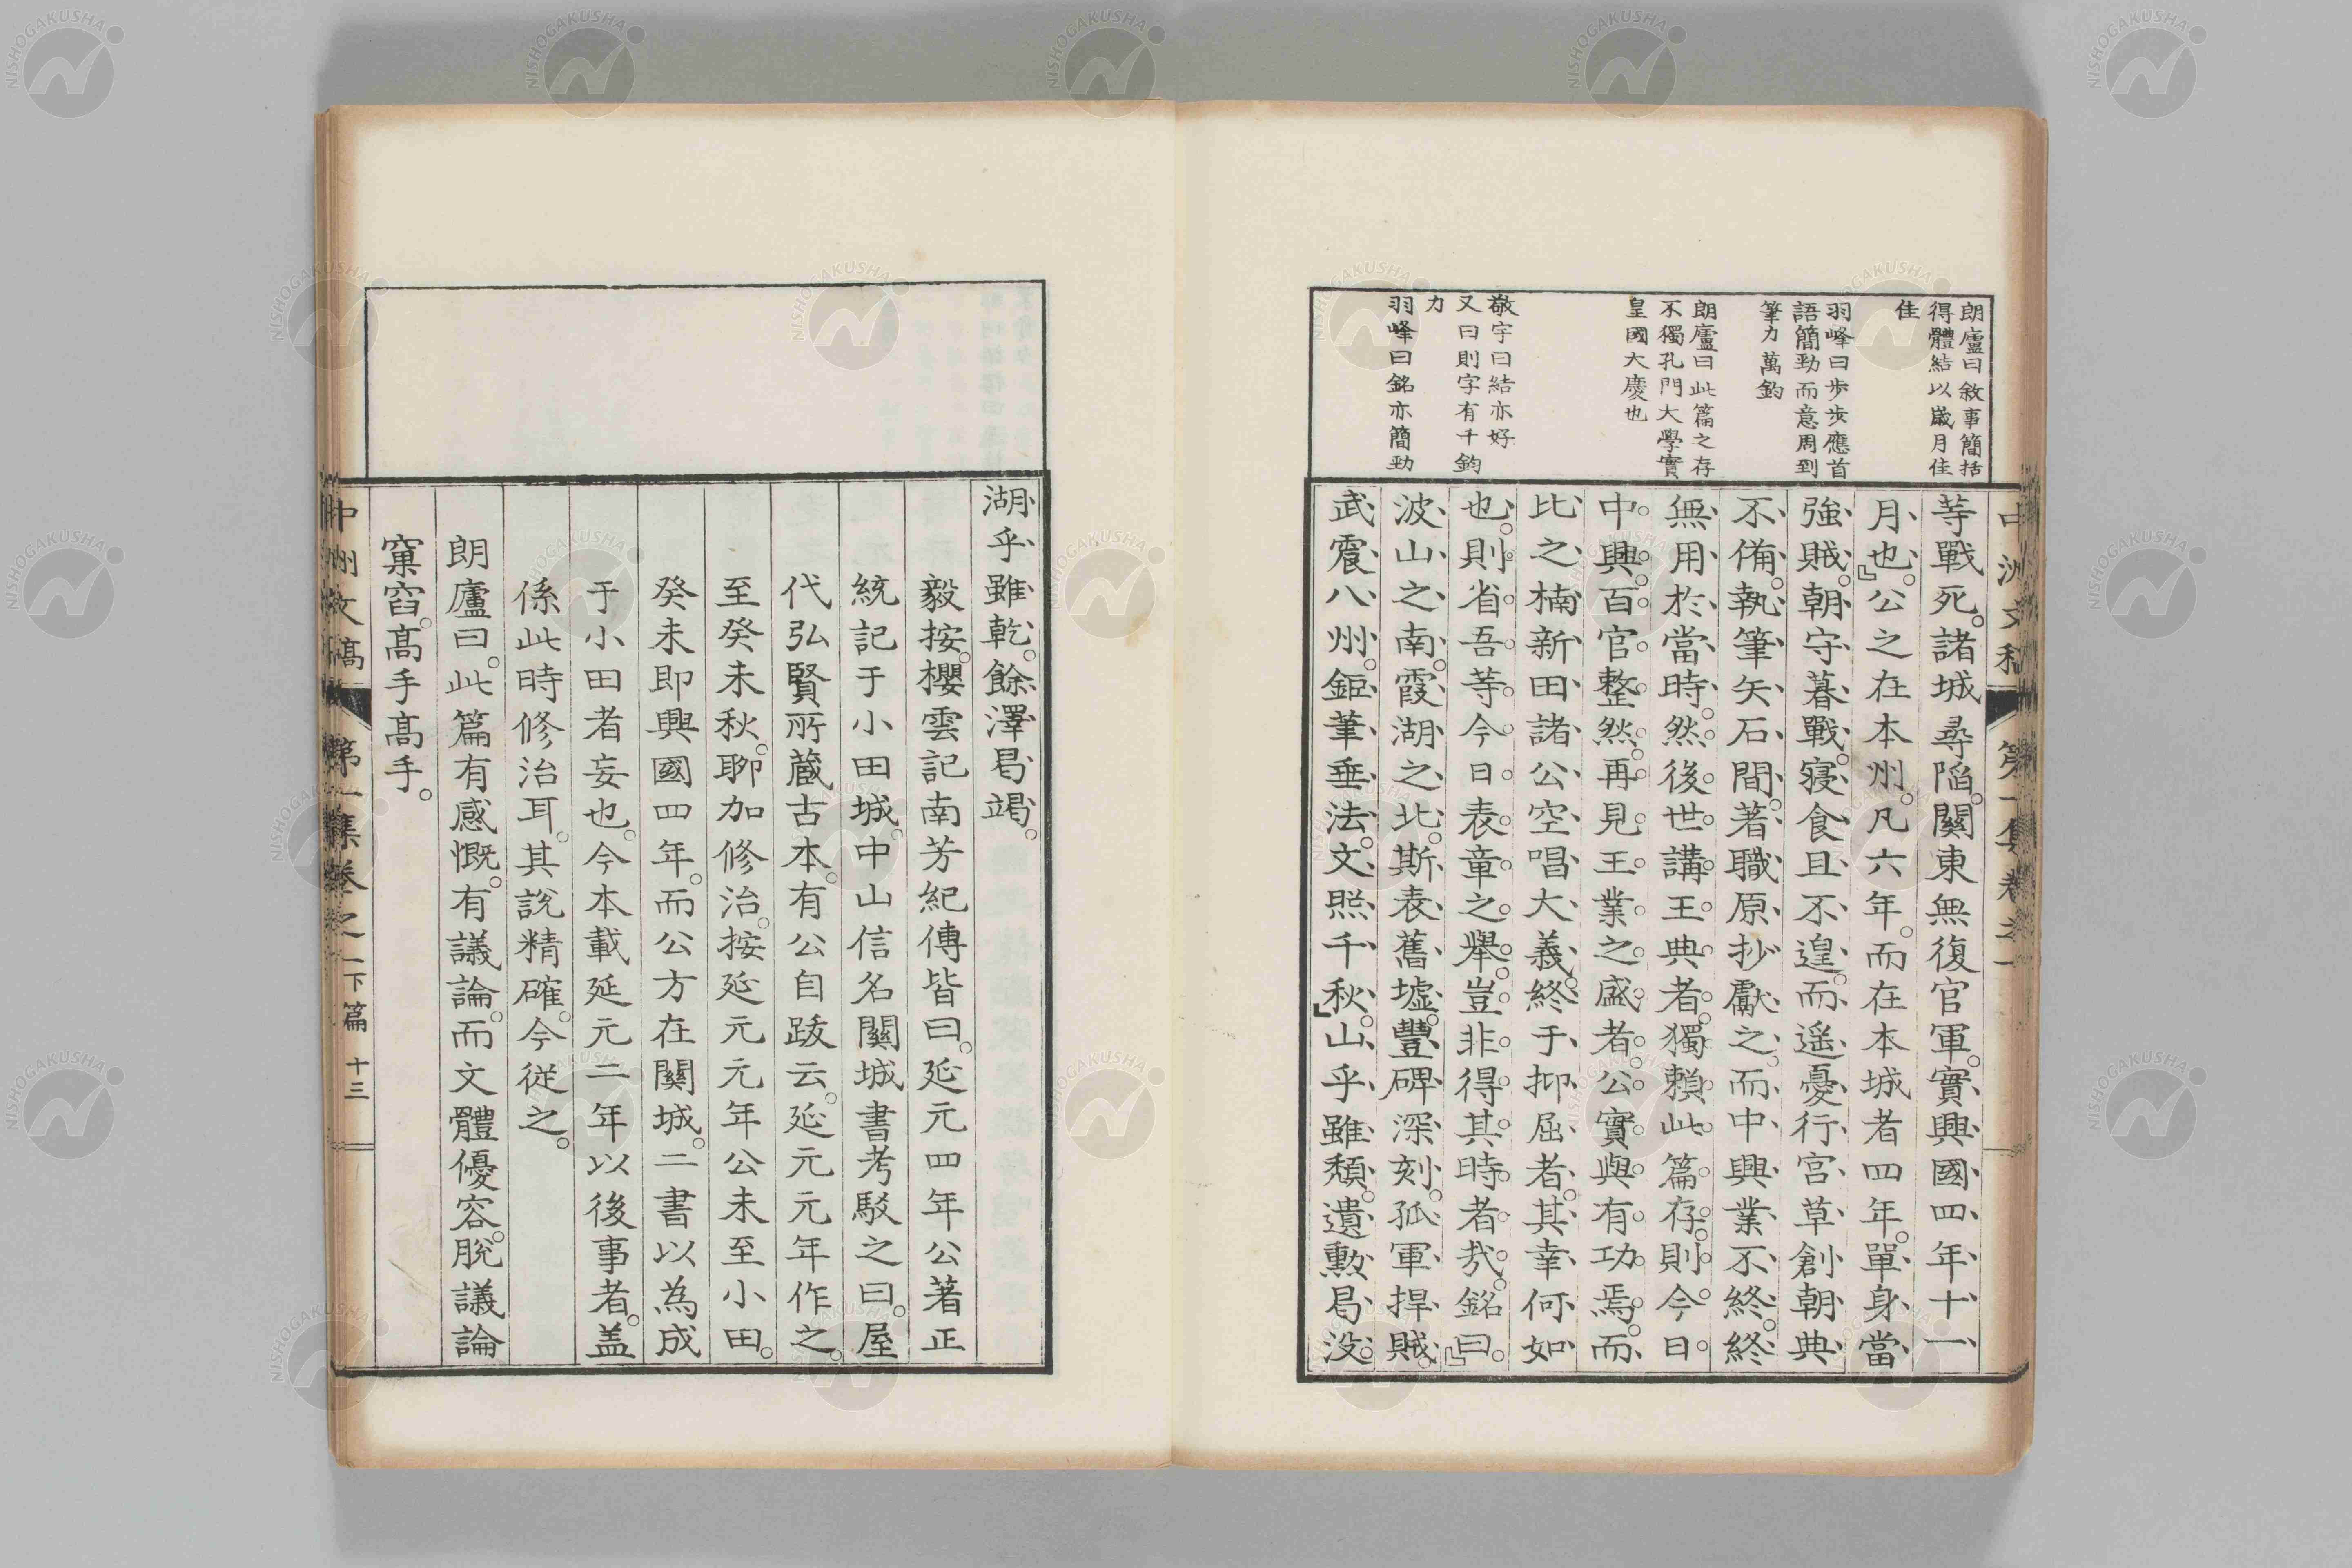 朗廬曰敘事簡括
得體結以歲月佳
佳
羽峰曰步步應首
語簡勁而意周到
筆力萬鈞
朗廬曰此篇之存
不獨孔門大學實
皇國大慶也
敬宇曰結亦好
又曰則字有千鈞
力
羽峰曰銘亦簡勁
等戰死。諸城尋陷。關東無復官軍。實興國四年十一
月也。』公之在本州。凡六年。而在本城者四年。單身當
強賊。朝守暮戰。寢食且不遑。而遙憂行宮草創朝典
不備。執筆矢石間。著職原抄獻之。而中興業不終。終
無用於當時。然後世講王典者。獨賴此篇存。則今日
中興。百官整然。再見王業之盛者。公實與有功焉。而
比之楠新田諸公空唱大義。終于抑屈者。其幸何如
也。則省吾等今日表章之舉。豈非得其時者哉。銘曰。』
波山之南。霞湖之北。斯表舊墟。豐碑深刻。孤軍捍賊。
武震八州。鉅筆垂法。文照千秋。』山乎雖頽。遺勲曷没。
湖乎雖乾。餘澤曷竭。
毅按。櫻雲記南芳紀傳皆曰。延元四年公著正
統記于小田城。中山信名關城書考駁之曰。屋
代弘賢所藏古本。有公自跋云。延元元年作之。
至癸未秋。聊加修治。按延元元年公未至小田。
癸未即興國四年。而公方在關城。二書以為成
于小田者妄也。今本載延元二年以後事者。盖
係此時修治耳。其說精確。今從之。
朗廬曰。此篇有感慨。有議論。而文體優容。脫議論
窠窞。高手高手。
中洲文稿
第一集卷之一下篇
十三